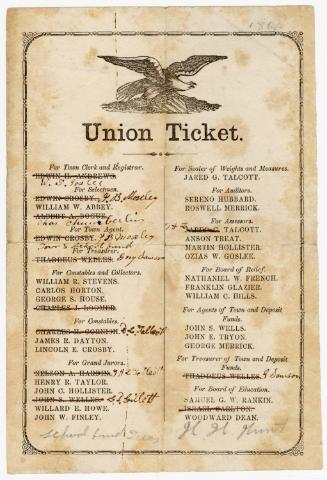 186
Union Ticket.
For Town Clerk and Registrar.
EDWIN H. ANDREWS.
W. S. Goslee
For Selectmen.
EDWIN CROSBY. P. B. Moseley
WILLIAM W. ABBEY.
ALBERT A. BOGUE.
For Town Agent.
EDWIN CROSBY. P B Moseley
For Treasurer.
THADDEUS WELLES.
For Constables and Collectors.
WILLIAM R. STEVENS.
CARLOS HORTON.
GEORGE S. HOUSE.
CHARLES J. LOOMER.
For Constables.
CHARLES H. CORNISH.
JAMES R. DAYTON.
LINCOLN E. CROSBY.
For Grand Jurors.
NELSON A. HARDIN.
HENRY R. TAYLOR.
JOHN C. HOLLISTER.
JOHN S. WELLES.
WILLARD E. HOWE.
JOHN W. FINLEY.
School fund
For Sealer of Weights and Measures.
JARED G. TALCOTT.
For Auditors.
SERENO HUBBARD.
ROSWELL MERRICK.
For Assessors.
JARED G. TALCOTT.
ANSON TREAT.
MARTIN HOLLISTER.
OZIAS W. GOSLEE.
For Board of Relief.
NATHANIEL W. FRENCH.
FRANKLIN GLAZIER.
WILLIAM C. HILLS.
For Agents of Town and Deposit
Funds.
JOHN S. WELLS.
JOHN E. TRYON.
GEORGE MERRICK.
For Treasurer of Town and Deposit
Funds.
THADDEUS WELLES.
For Board of Education.
SAMUEL G. W. RANKIN.
ISRAEL CARLTON.
WOODWARD DEAN.